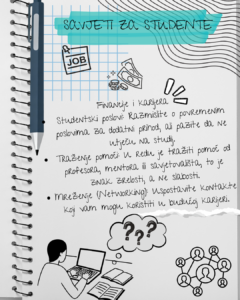 SAVJETI ZA STUDENTE
JOB
Financije i karijera
Studentski poslovi: Razmislite o povremenim
poslovima za dodatni prihod, ali pazite da ne
utječu na studij.
Traženje pomoći: U redu je tražiti pomoć od
profesora, mentora ili savjetovališta, to je
znak zrelosti, a ne slabosti.
Mreženje (Networking): Uspostavite kontakte
koji vam mogu koristiti u budućoj karijeri.
???